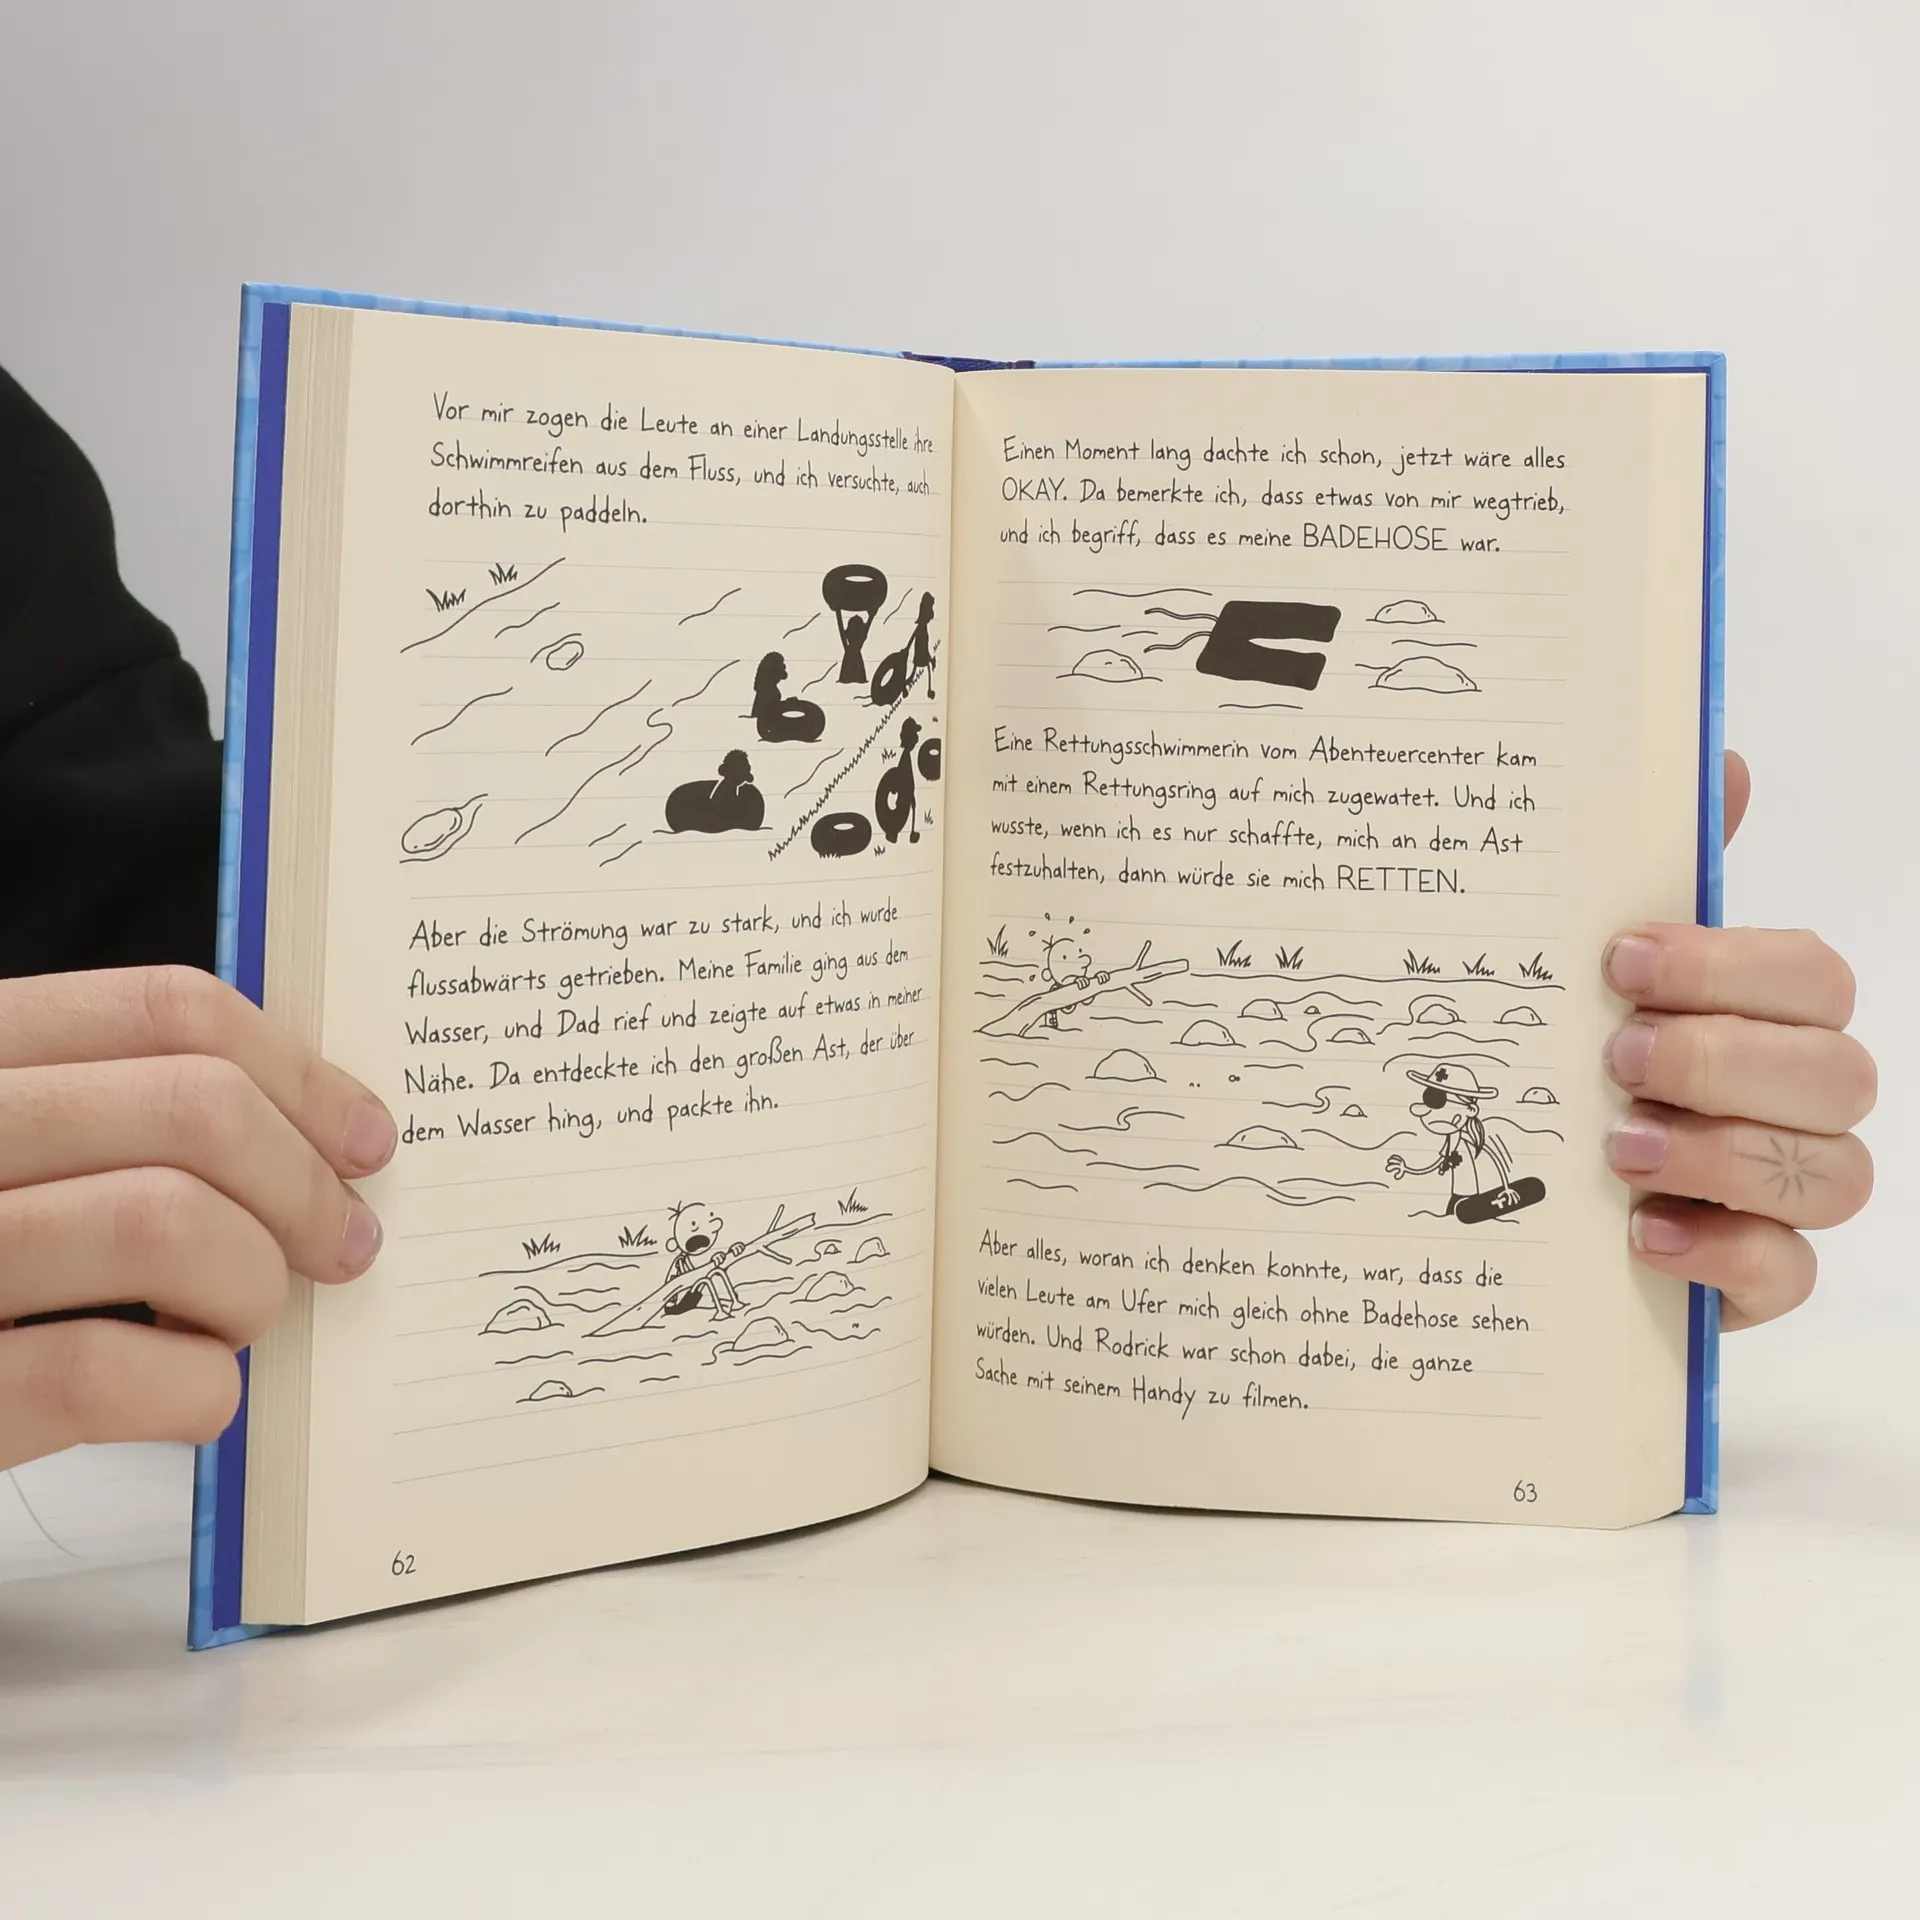 Vor mir zogen die Leute an einer Landungsstelle ihre
Schwimmreifen aus dem Fluss, und ich versuchte, auch
dorthin zu paddeln.
Aber die Strömung war zu stark, und ich wurde
flussabwärts getrieben. Meine Familie ging aus dem
Wasser, und Dad rief und zeigte auf etwas in meiner
Nähe. Da entdeckte ich den großen Ast, der über
dem Wasser hing, und packte ihn.
62
Einen Moment lang dachte ich schon, jetzt wäre alles
OKAY. Da bemerkte ich, dass etwas von mir wegtrieb,
und ich begriff, dass es meine BADEHOSE war.
Eine Rettungsschwimmerin vom Abenteuercenter kam
mit einem Rettungsring auf mich zugewatet. Und ich
wusste, wenn ich es nur schaffte, mich an dem Ast
festzuhalten, dann würde sie mich RETTEN.
Aber alles, woran ich denken konnte, war, dass die
vielen Leute am Ufer mich gleich ohne Badehose sehen
würden. Und Rodrick war schon dabei, die ganze
Sache mit seinem Handy zu filmen.
63